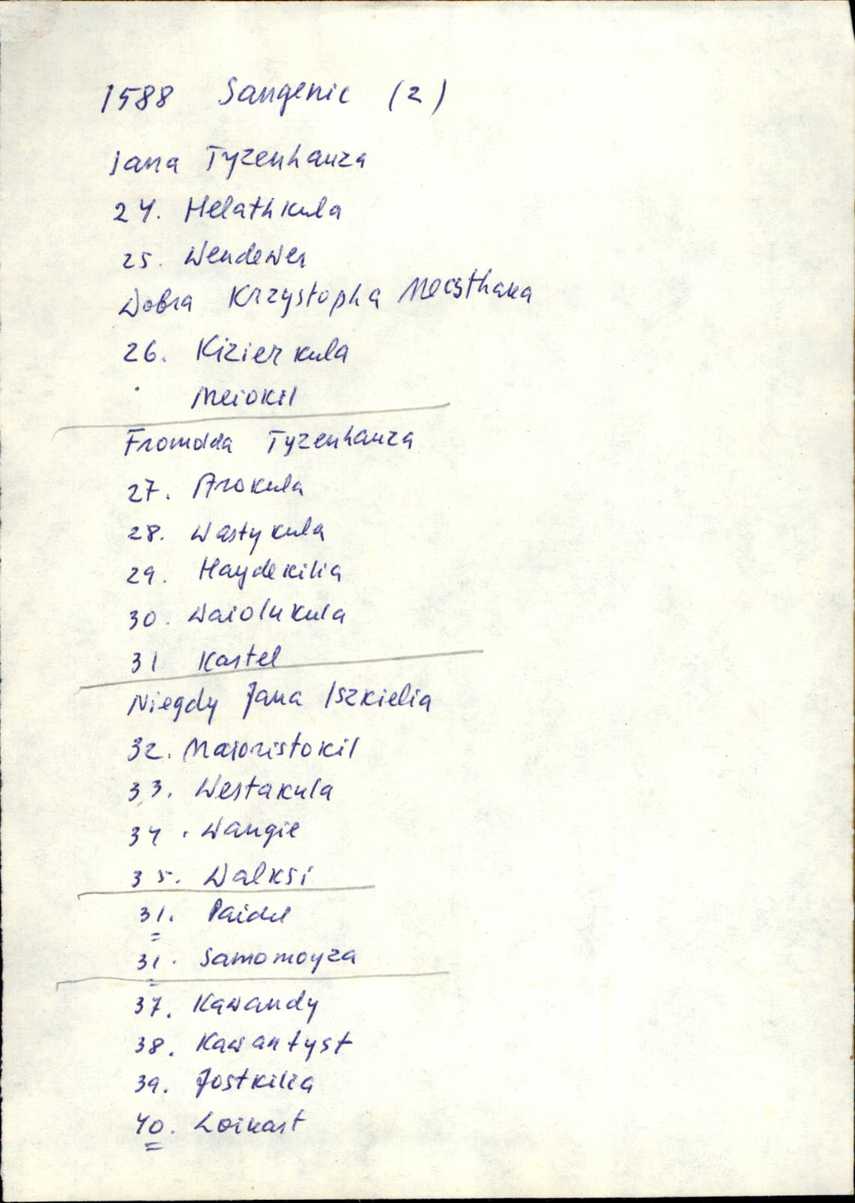 1588 Sangenic (2)
Jana Tyzenhauza
24. Helathkula
25. Wendewer
Dobra Krzystopha
26. Kizierkula
Meiokil
Fromolda Tyzenhauza
27. Arokula
28. Wastykula
29. Haydekilia
30. Waiolukula
31 Kastel
Niegdy Jana Iszkielia
32. Maioristokil
33. Westakula
34. Wangie
35. Walksi
31. Paidel
31. Samomoyza
37. Kawandy
38. Kawantyst
39. Jostkilia
40. Loikast